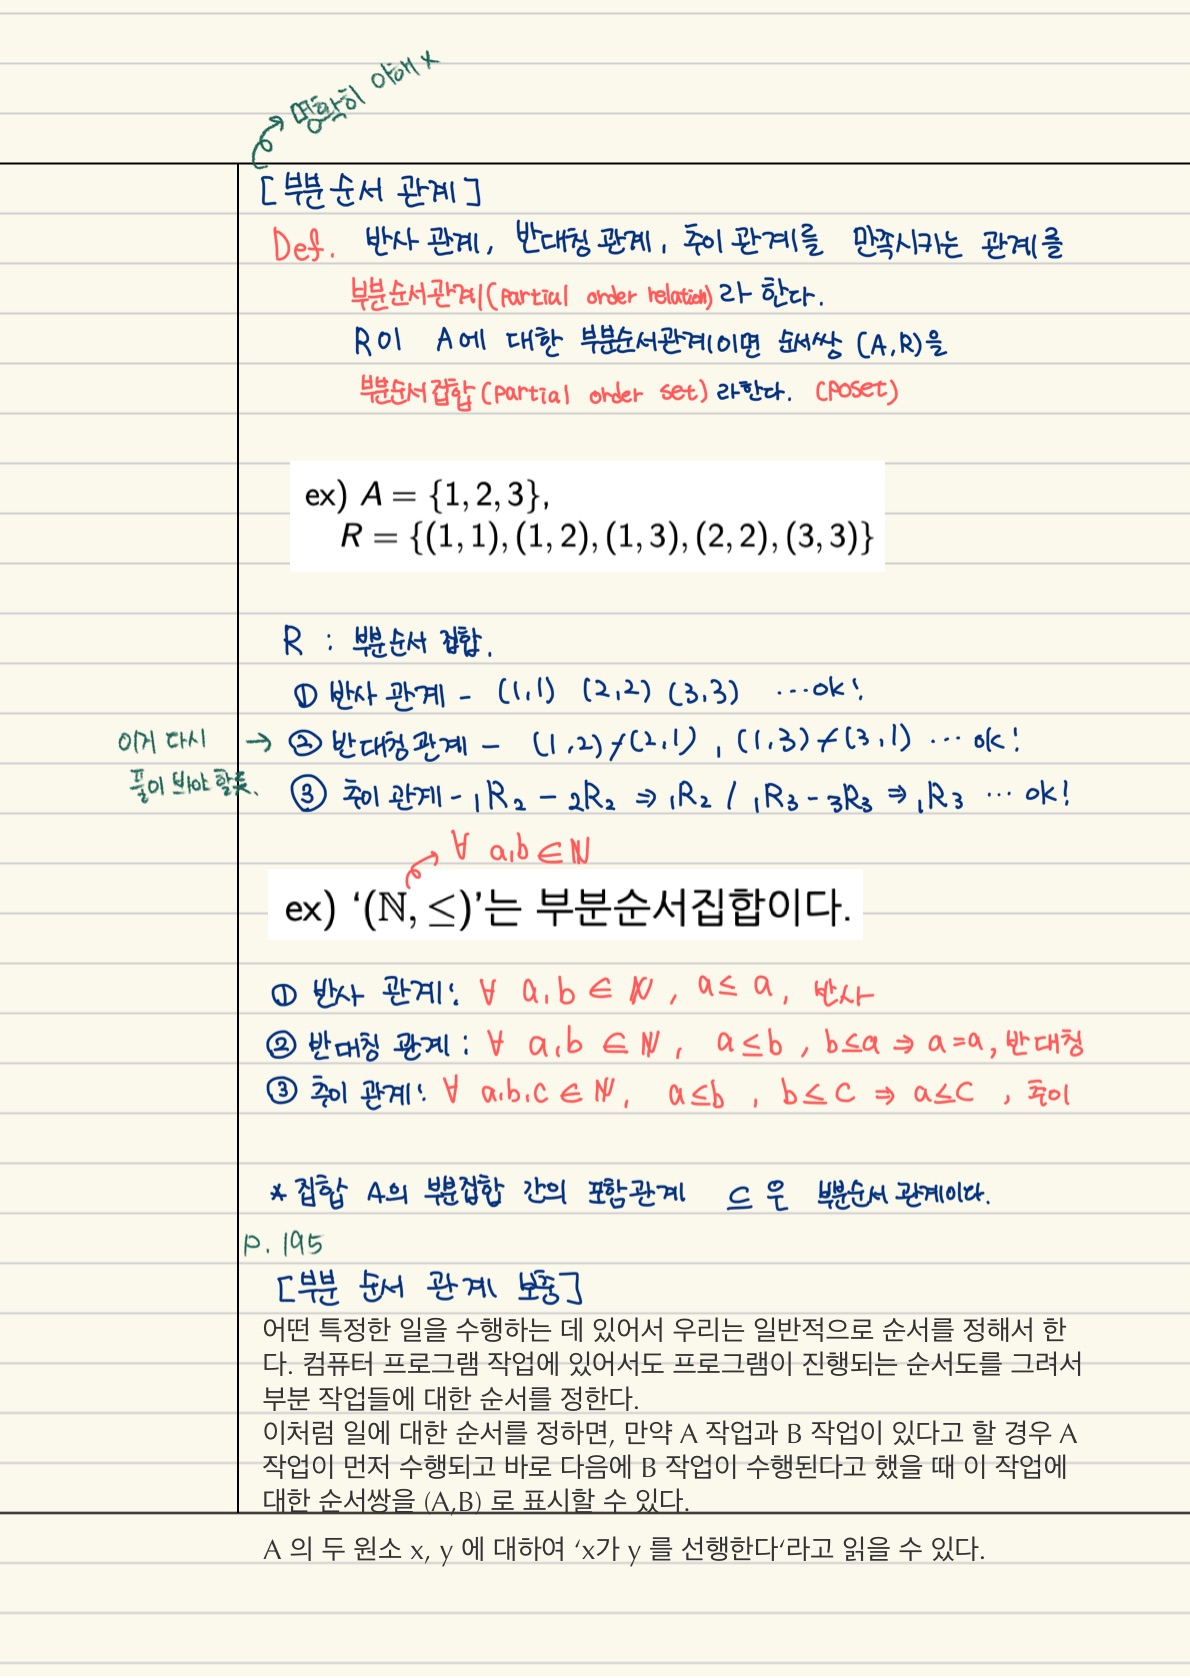 명확히 이해 x
[부분 순서 관계]
Def. 반사 관계, 반대칭 관계, 추이 관계를 만족시키는 관계를
부분순서관계(partial order relation)라 한다.
R이 A에 대한 부분순서관계이면 순서쌍 (A,R)을
부분순서집합(partial order set)라한다. (poset)
ex) A = {1, 2, 3},
R = {(1, 1), (1, 2), (1, 3), (2, 2), (3, 3)}
R : 부분순서 집합.
① 반사 관계 - (1,1) (2,2) (3,3) ...ok!
이거 다시 → ② 반대칭관계 - (1,2)≠(2,1), (1,3)≠(3,1) ... ok!
풀이 봐야 할듯.
③ 추이 관계 - ₁R₂ - ₂R₂ ⇒ ₁R₂ / ₁R₃ - ₃R₃ ⇒ ₁R₃ ... ok!
∀ a,b ∈ ℕ
ex) ‘(ℕ, ≤)’는 부분순서집합이다.
① 반사 관계: ∀ a,b ∈ ℕ, a≤a, 반사
② 반대칭 관계: ∀ a,b ∈ ℕ, a≤b, b≤a ⇒ a=a, 반대칭
③ 추이 관계: ∀ a,b,c ∈ ℕ, a≤b, b≤c ⇒ a≤c, 추이
* 집합 A의 부분집합 간의 포함관계 ⊆ 은 부분순서 관계이다.
p. 195
[부분 순서 관계 보충]
어떤 특정한 일을 수행하는 데 있어서 우리는 일반적으로 순서를 정해서 한
다. 컴퓨터 프로그램 작업에 있어서도 프로그램이 진행되는 순서도를 그려서
부분 작업들에 대한 순서를 정한다.
이처럼 일에 대한 순서를 정하면, 만약 A 작업과 B 작업이 있다고 할 경우 A
작업이 먼저 수행되고 바로 다음에 B 작업이 수행된다고 했을 때 이 작업에
대한 순서쌍을 (A,B) 로 표시할 수 있다.
A 의 두 원소 x, y 에 대하여 ‘x가 y 를 선행한다‘라고 읽을 수 있다.